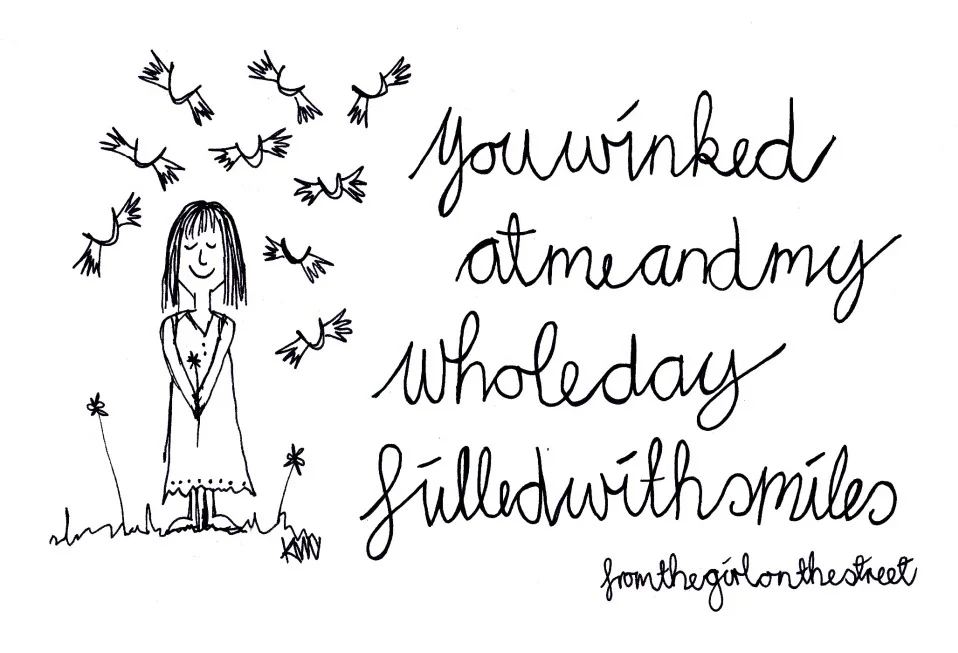 you winked
at me and my
whole day
filled with smiles
from the girl on the street
KW